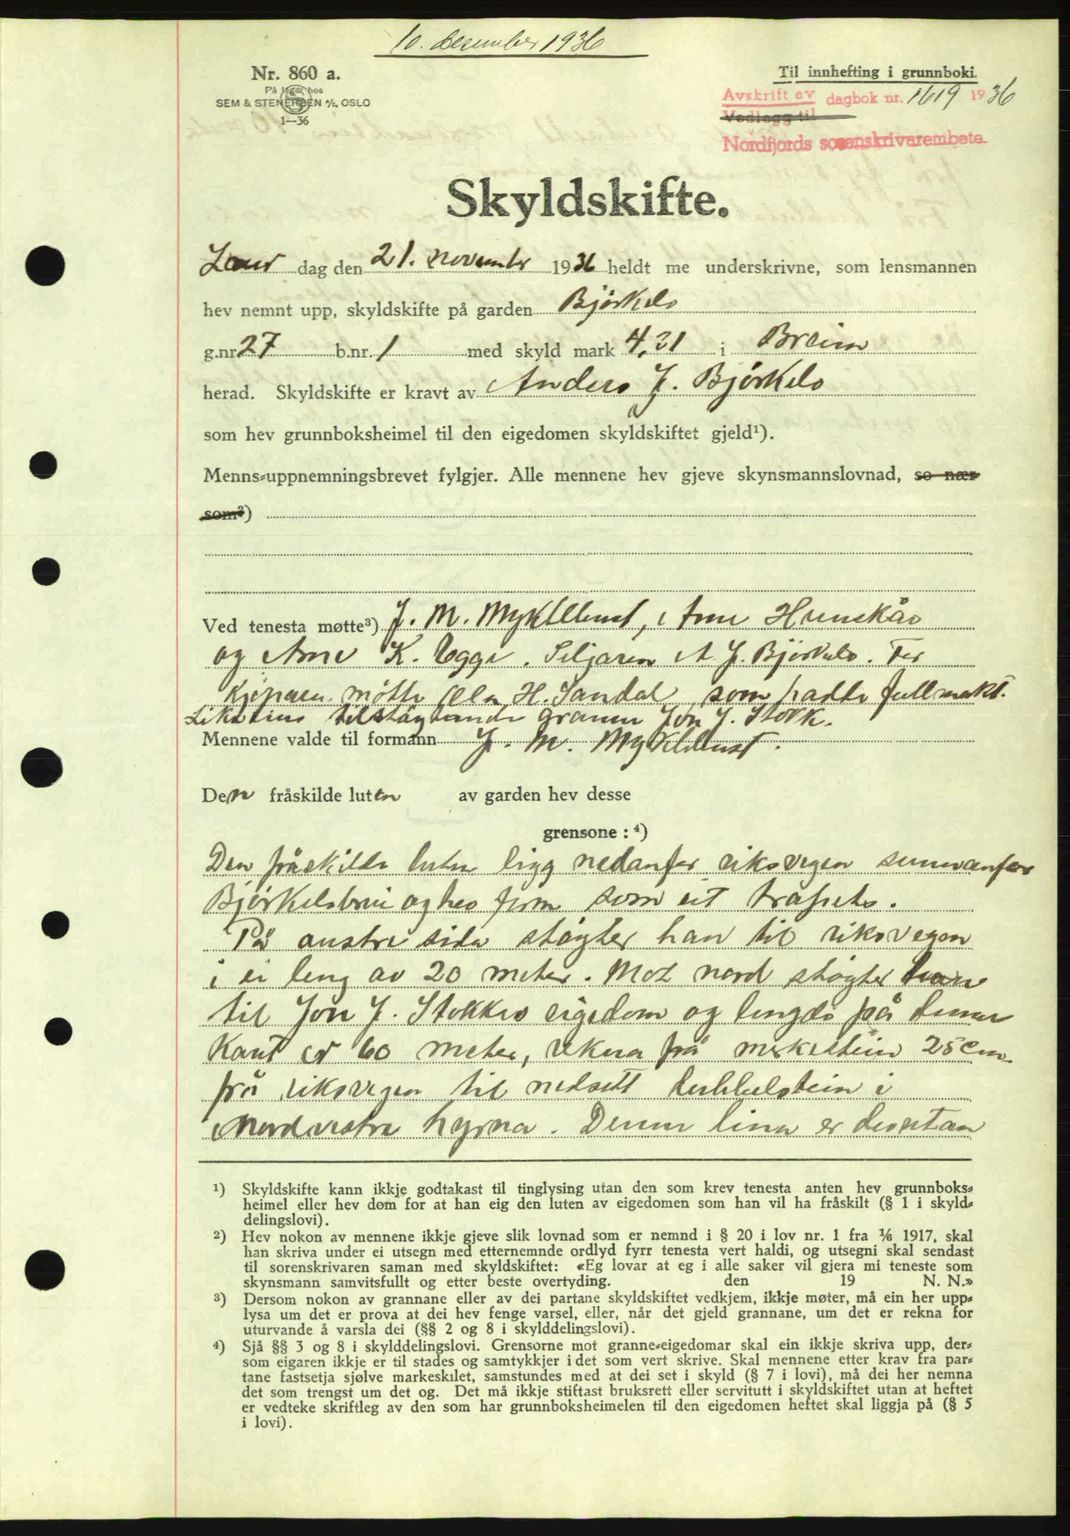 10. desember 1936
Nr. 860 a.
På lager hos
SEM & STENERSEN A/S, OSLO
1—36
Til innhefting i grunnboki.
Avskrift av dagbok nr. 1619 1936
Vedlegg til
Nordfjords sorenskrivarembete.
Skyldskifte.
Laur dag den 21. november 1936 heldt me underskrivne, som lensmannen
hev nemnt upp, skyldskifte på garden Björkelo
g.nr. 27 b.nr. 1 med skyld mark 4,31 i Breim
herad. Skyldskifte er kravt av Anders J. Björkelo
som hev grunnboksheimel til den eigedomen skyldskiftet gjeld¹).
Menns-uppnemningsbrevet fylgjer. Alle mennene hev gjeve skynsmannslovnad, so nær
som²)
Ved tenesta møtte³) J. M. Myklebust, Arne Hunskår
og Arne K. Egge. Seljaren A. J. Björkelo. For
Kjöparen møtte Ola H. Sandal som hadde fullmakt.
Likeeins tilstøytande granne Jon J. Stokk.
Mennene valde til formann J. M. Myklebust.
Den fråskilde luten av garden hev desse
grensone: ⁴)
Den fråskilde luten ligg nedanfor riksvegen sunnanfor
Björkelobrui og hev form som eit trapets.
På austre sida støyter han til riksvegen
i ei leng av 20 meter. Mot nord støyter han
til Jon J. Stokkes eigedom og lengde på denne
Kant er 60 meter, rekna frå merkestein 25 cm
frå riksvegen til nedsett dubbelstein i
Nordvestre hyrna. Denne lina er desutan
¹) Skyldskifte kann ikkje godtakast til tinglysing utan den som krev tenesta anten hev grunnboks-
heimel eller hev dom for at han eig den luten av eigedomen som han vil ha fråskilt (§ 1 i skyld-
delingslovi).
²) Hev nokon av mennene ikkje gjeve slik lovnad som er nemnd i § 20 i lov nr. 1 fra ⅙ 1917, skal
han skriva under ei utsegn med etternemnde ordlyd fyrr tenesta vert haldi, og utsegni skal sendast
til sorenskrivaren saman med skyldskiftet: «Eg lovar at eg i alle saker vil gjera mi teneste som
skynsmann samvitsfullt og etter beste overtyding. den 19 N. N.»
³) Dersom nokon av grannane eller av dei partane skyldskiftet vedkjem, ikkje møter, må ein her upp-
lysa um det er prova at dei hev fenge varsel, eller, når det gjeld grannane, um det er rekna for
uturvande å varsla dei (§§ 2 og 8 i skylddelingslovi).
⁴) Sjå §§ 3 og 8 i skylddelingslovi. Grensorne mot granne-eigedomar skal ein ikkje skriva upp, der-
som eigaren ikkje er til stades og samtykkjer i det som vert skrive. Skal mennene etter krav fra par-
tane fastsetja sjølve markeskilet, samstundes med at dei set i skyld (§ 7 i lovi), må dei her nemna
det som trengst um det og. Det må ikkje stiftast bruksrett eller servitutt i skyldskiftet utan at heftet
er vedteke skriftleg av den som har grunnboksheimelen til den eigedomen heftet skal liggja på (§ 5
i lovi).